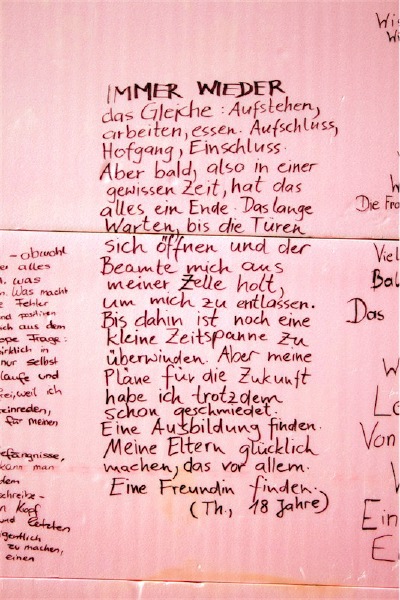 IMMER WIEDER
das Gleiche: Aufstehen,
arbeiten, essen. Aufschluss,
Hofgang, Einschluss.
Aber bald, also in einer
gewissen Zeit, hat das
alles ein Ende. Das lange
Warten, bis die Türen
sich öffnen und der
Beamte mich aus
meiner Zelle holt,
um mich zu entlassen.
Bis dahin ist noch eine
kleine Zeitspanne zu
überwinden. Aber meine
Pläne für die Zukunft
habe ich trotzdem
schon geschmiedet.
Eine Ausbildung finden.
Meine Eltern glücklich
machen, das vor allem.
Eine Freundin finden.
(Th., 18 Jahre)
- obwohl
alles
was
Was macht
Fehler
und positiven
aus dem
Frage:
wirklich in
nur selbst
laufe und
weil ich
einreden,
für meinen
kann man
dem
Kopf
und letzten
zu machen,
einen
Die
Viel
Das
Von